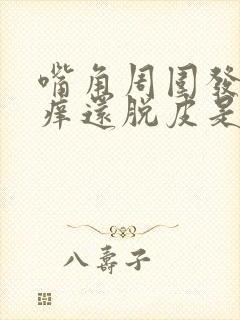 嘴角周圍發
癢還脫皮是
八壽子